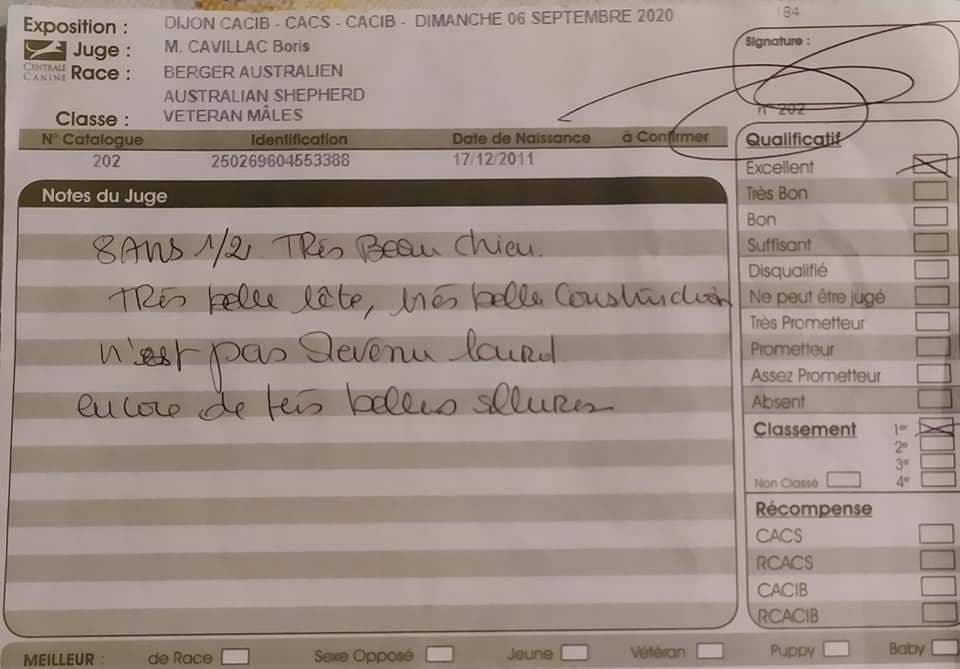 184
Exposition : DIJON CACIB - CACS - CACIB - DIMANCHE 06 SEPTEMBRE 2020
Juge : M. CAVILLAC Boris
CENTRALE CANINE
Race : BERGER AUSTRALIEN
AUSTRALIAN SHEPHERD
Classe : VETERAN MÂLES
Signature :
n° 202
N° Catalogue Identification Date de Naissance à Confirmer
202 250269604553388 17/12/2011
Notes du Juge
8 ANS 1/2 TRÈS Beau chien.
TRÈS belle tête, très belle Construction
n'est pas Devenu lourd
encore de très belles allures
Qualificatif
Excellent
Très Bon
Bon
Suffisant
Disqualifié
Ne peut être jugé
Très Prometteur
Prometteur
Assez Prometteur
Absent
Classement 1er
2e
3e
Non Classé 4e
Récompense
CACS
RCACS
CACIB
RCACIB
MEILLEUR : de Race Sexe Opposé Jeune Vétéran Puppy Baby